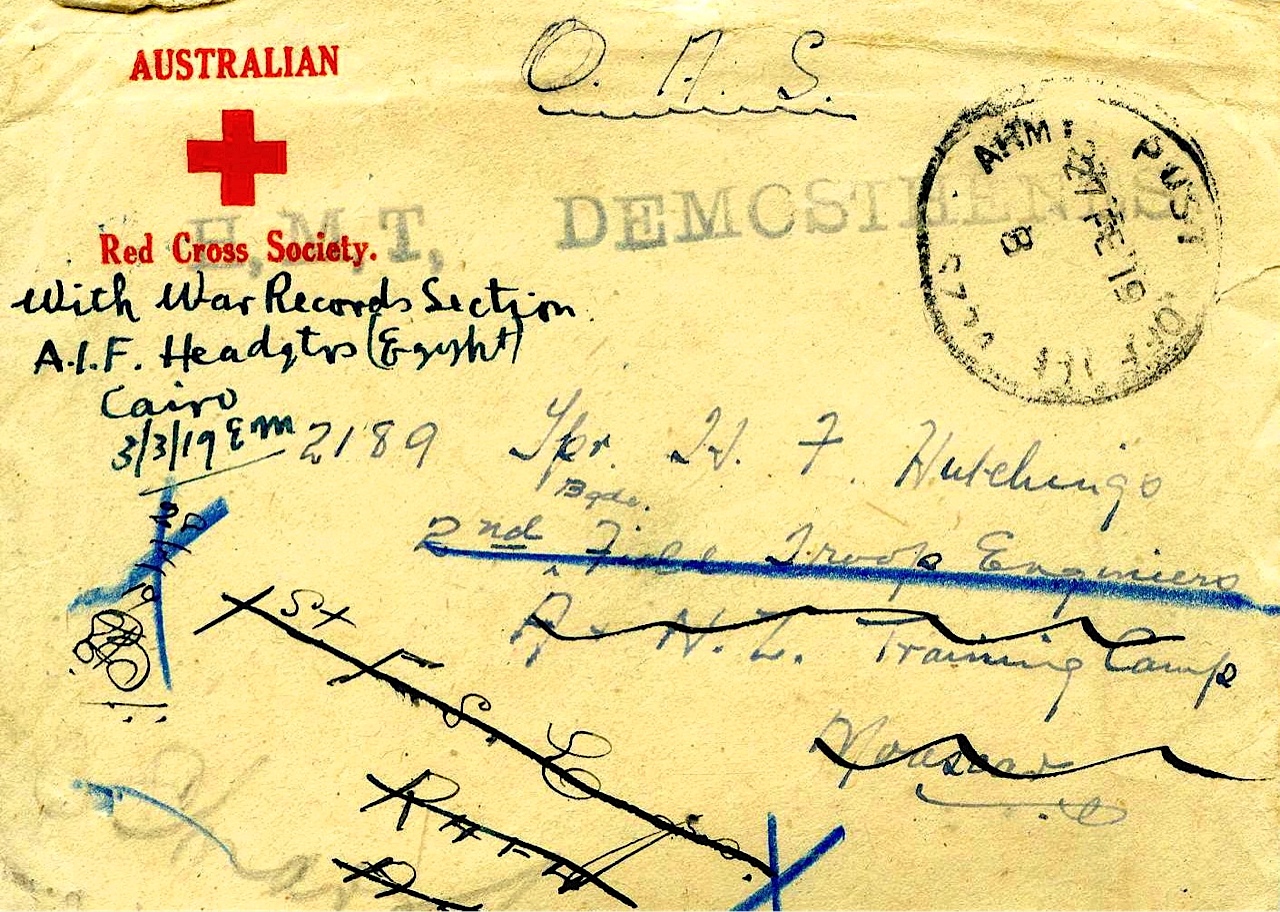 AUSTRALIAN
Red Cross Society.
O. A. S.
H.M.T. DEMOSTHENES
ARMY POST OFFICE
27 FE 19
B
With War Records Section
A.I.F. Headqtrs (Egypt)
Cairo
3/3/19 EM
2189 Spr. H. F. Hutchings
Bgde.
2nd Field Troop Engineers
A & N.Z. Training Camp
Moascar
St
F. S. Co.